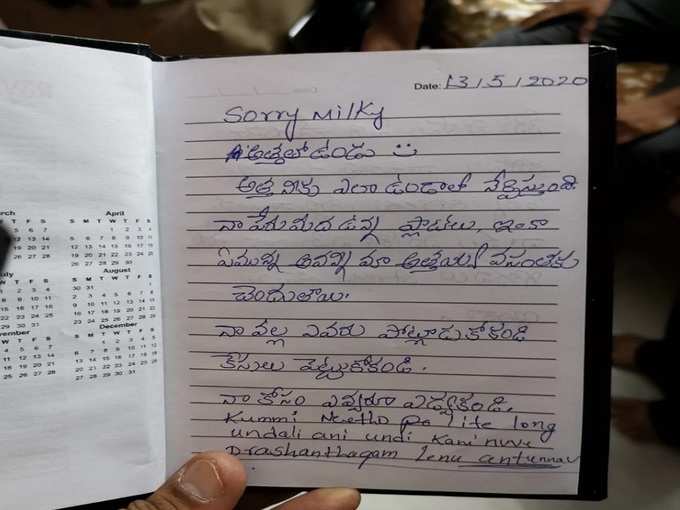 Date: 13/5/2020
Sorry Milky
అత్తతో ఉండు
అత్త నీకు ఎలా ఉండాలో నేర్పిస్తుంది.
నా పేరు మీద ఉన్న ప్లాటులు, ఇంకా
ఏమున్నా అవన్నీ మా వసంతకు
చెందుతాయి.
నా వల్ల ఎవరు పోట్లాడుకోకండి
కేసులు పెట్టుకోకండి.
నా కోసం ఎవ్వరూ ఏడ్వకండి.
Kummi Neetho life long
undali ani undi Kani nuvve
Prashanthagam lenu antunnav
April
S M T W T F S
August
S M T W T F S
December
S M T W T F S